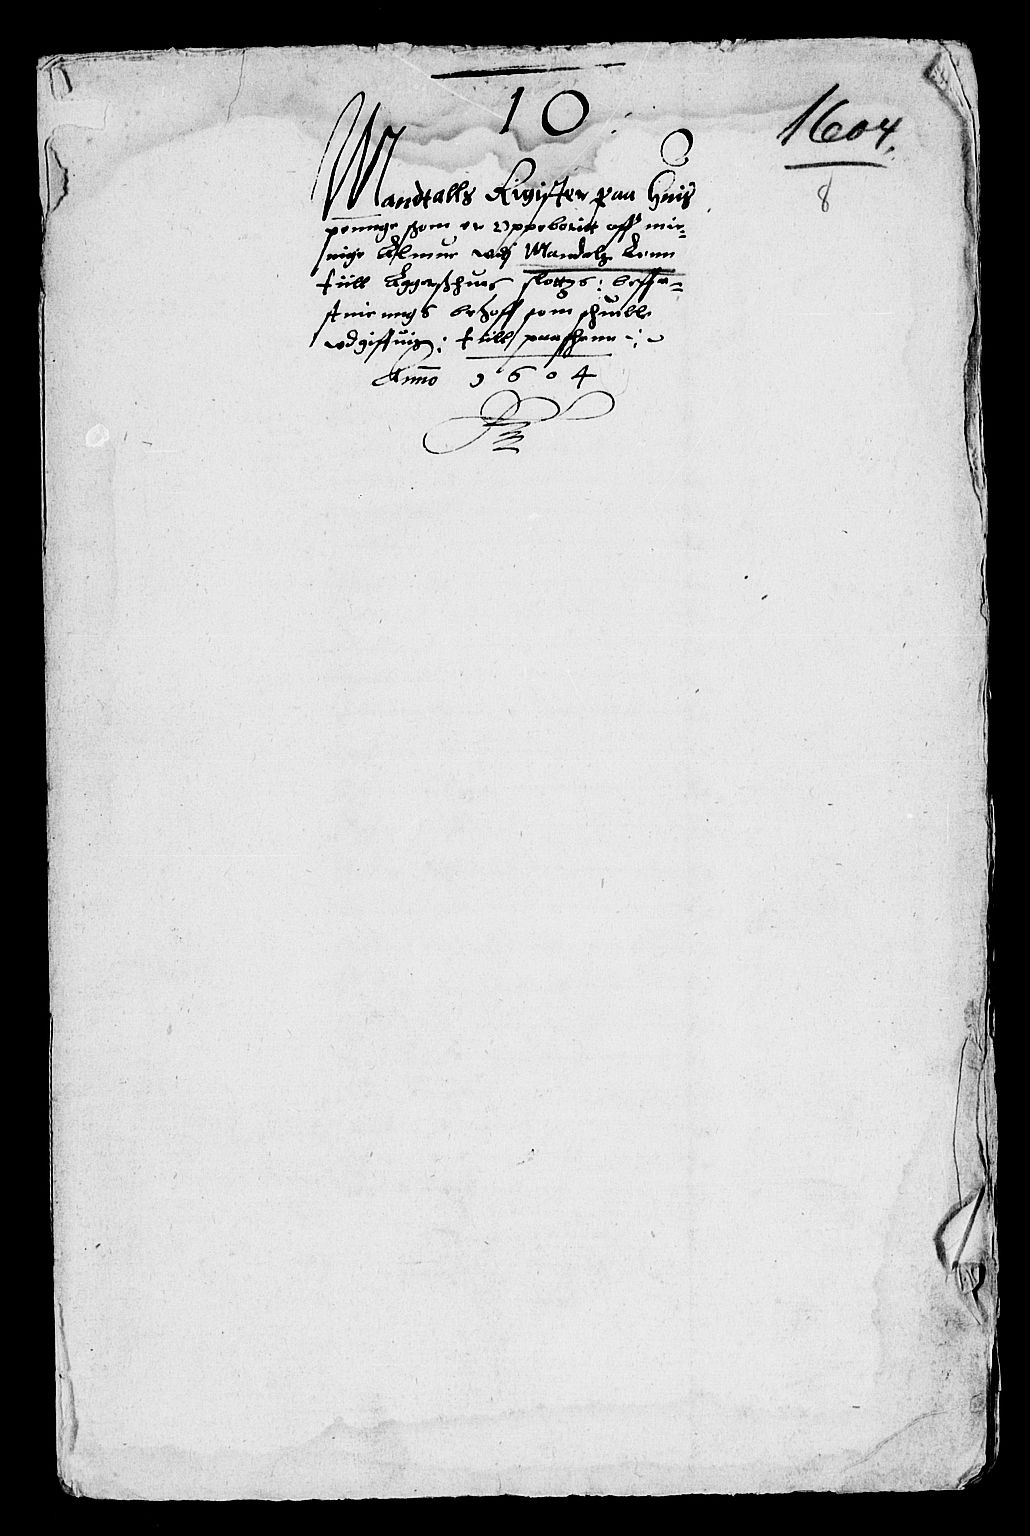 10
1604.
8
Mandtalls Register paa Huis
pennge som er Oppeboritt aff me-
nige Almue vdj Mandals Lenn
till Aggershuus slottes: beffe-
stnienngs behoff som schulle
vdgiffuis: till paasschenn
Anno 1604